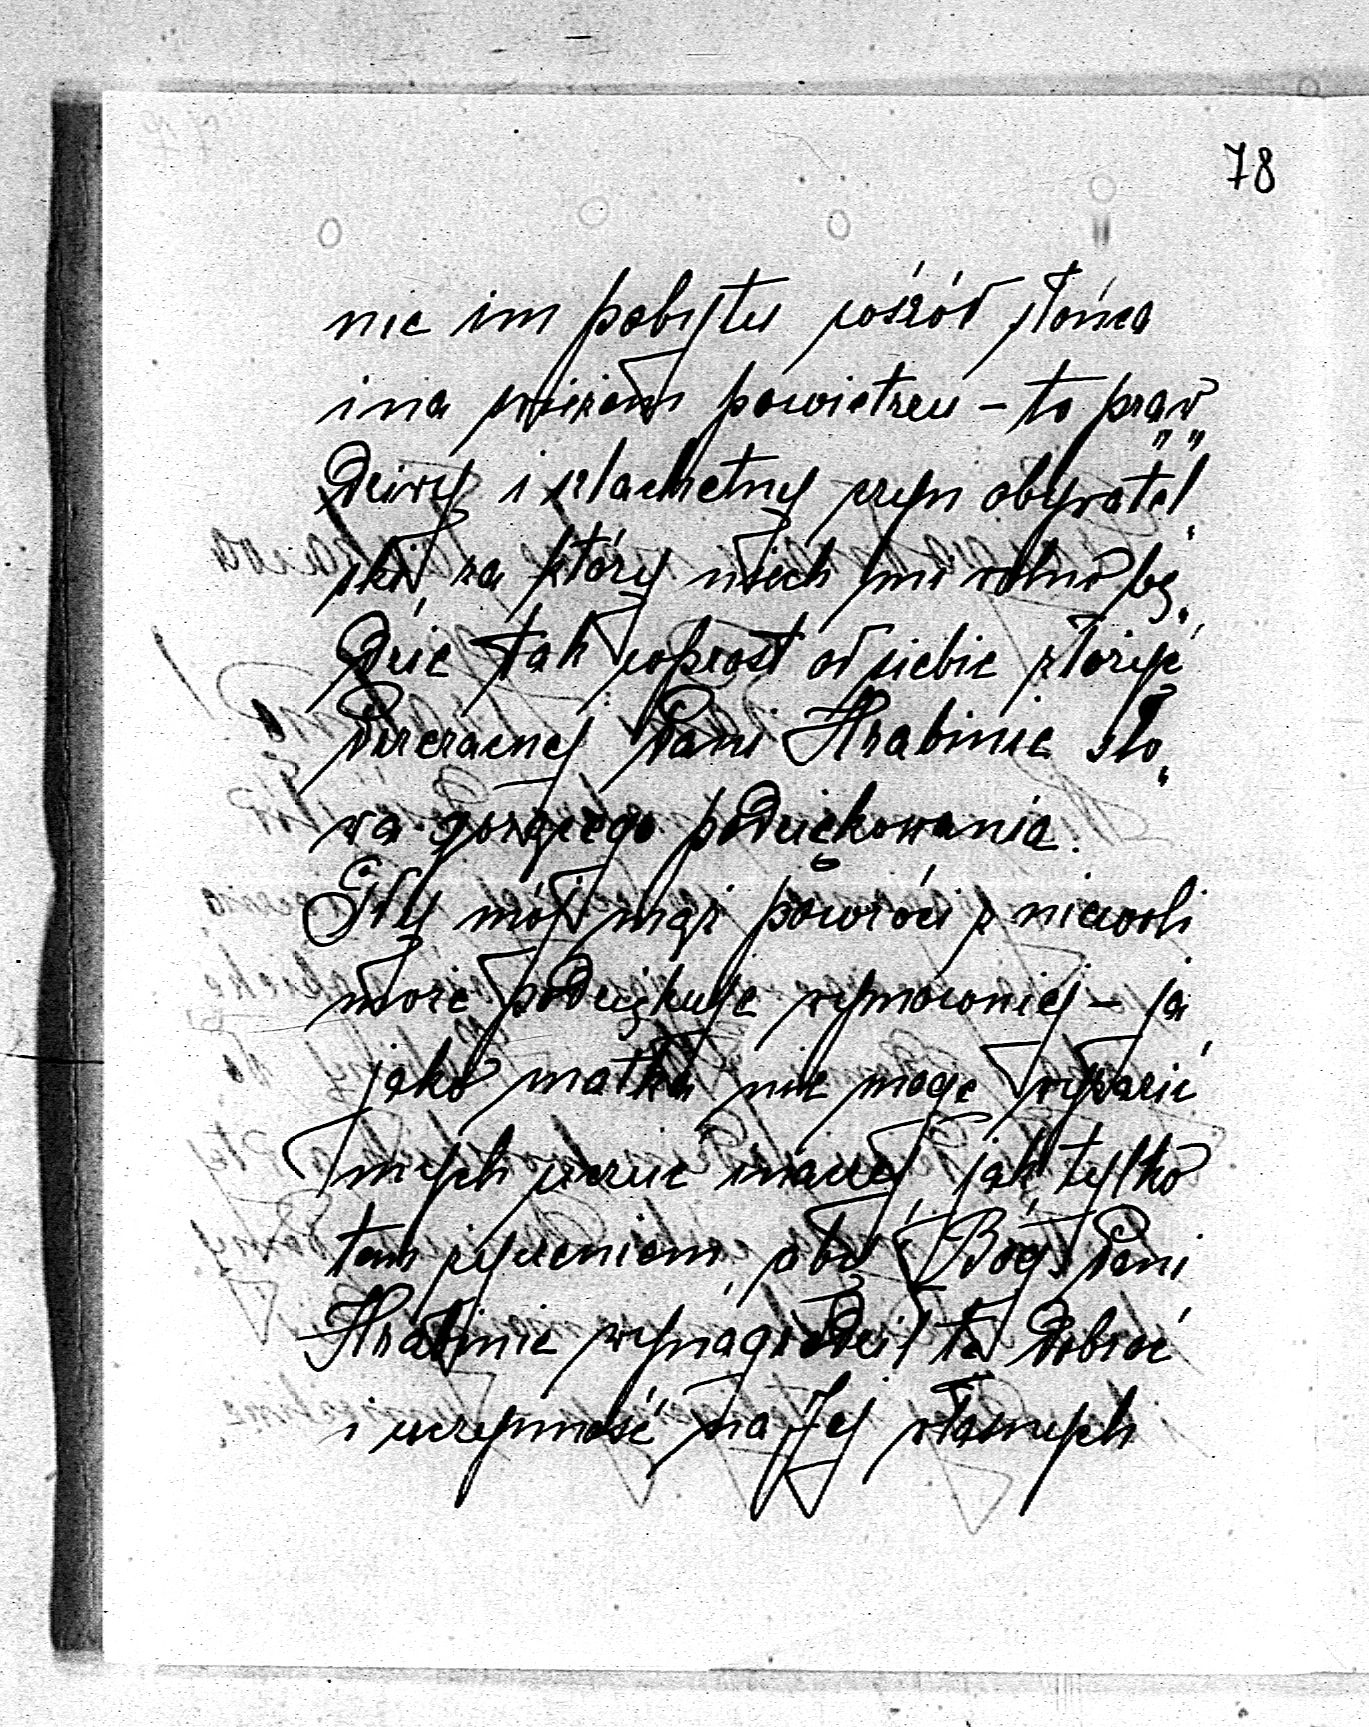 78
nie im pobytu pośród słońca
i na świeżem powietrzu – to praw„
dziwy i szlachetny czyn obywatel„
ski za który niech mi wolno bę„
dzie tak poprost od siebie złożyć
Przezacnej Pani Hrabinie sło„
wa gorącego podziękowania.
Gdy mój mąż powróci z niewoli
może podziękuje wymowniej – ja
jako matka nie mogę wyrazić
mych uczuć inaczej jak tylko
tem życzeniem, aby Bóg Pani
Hrabinie wynagrodził tę dobroć
i uczynność na Jej własnych